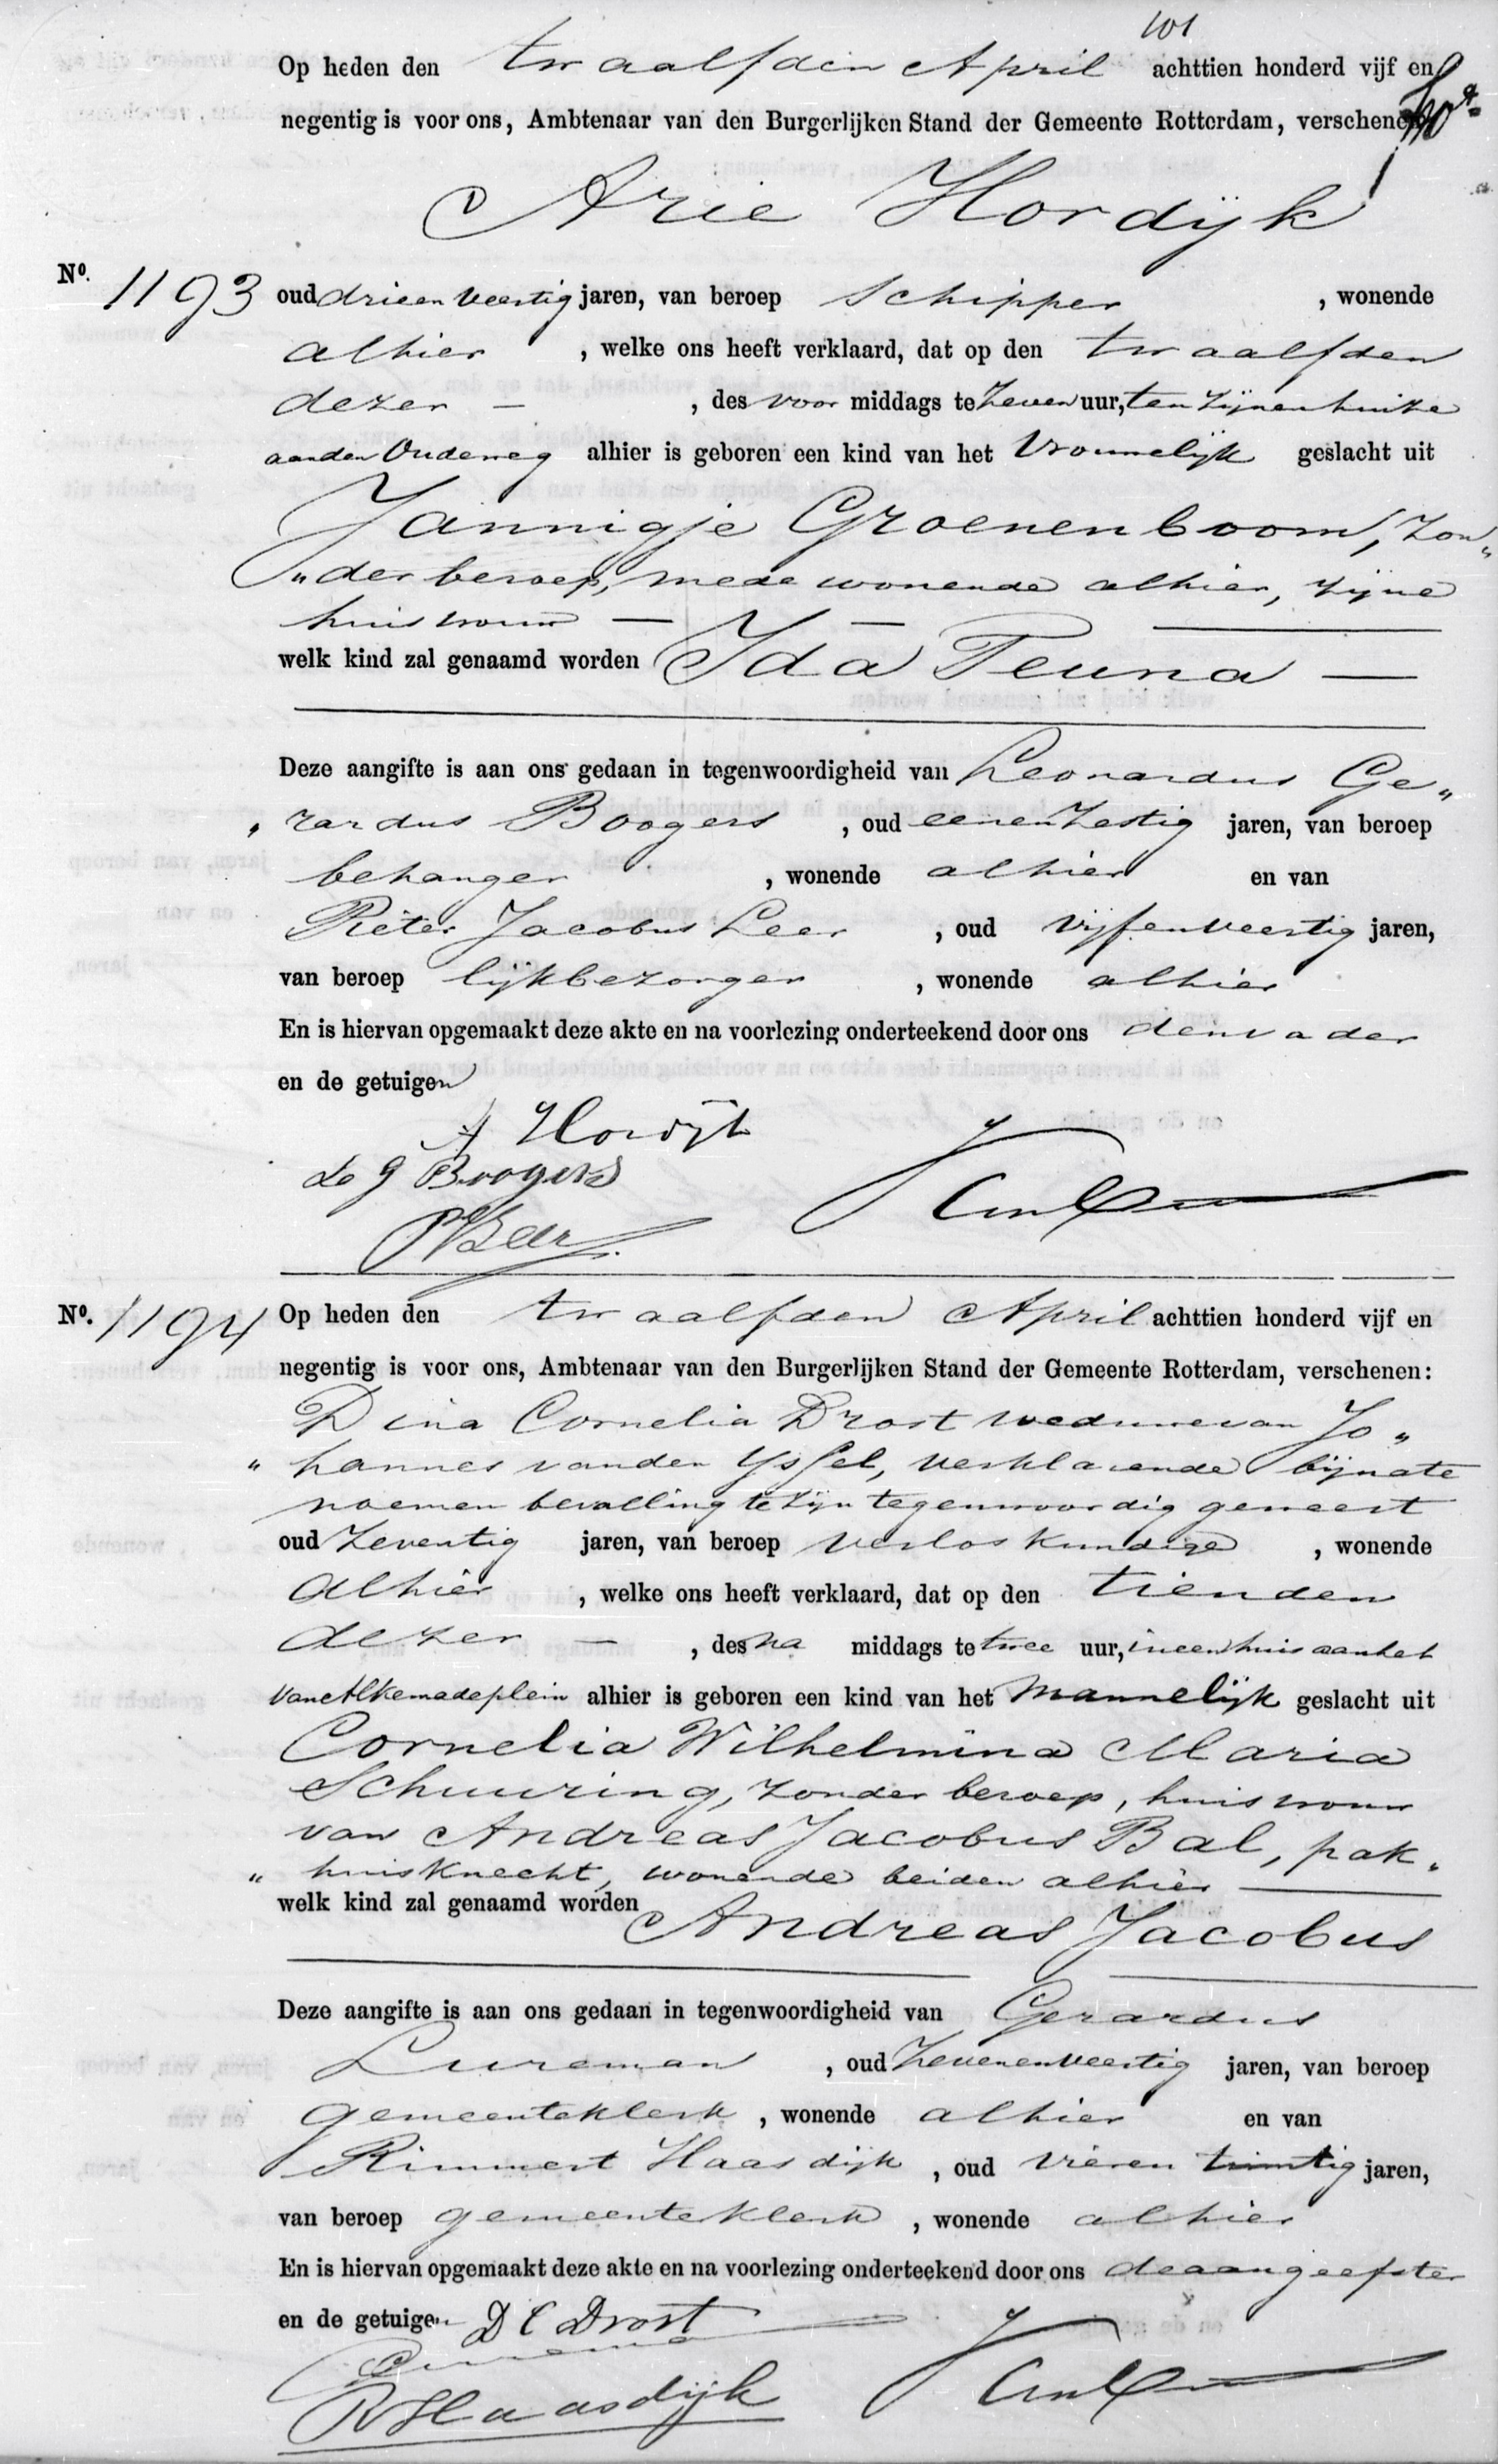 101
Op heden den twaalfden April achttien honderd vijf en
negentig is voor ons, Ambtenaar van den Burgerlijken Stand der Gemeente Rotterdam, verschenen
Arie Hordijk
No. 1193 oud drieenveertig jaren, van beroep schipper , wonende
alhier , welke ons heeft verklaard, dat op den twaalfden
dezer — , des voor middags te zeven uur, ten zijnen huize
aan den Oudeweg alhier is geboren een kind van het vrouwelijk geslacht uit
Jannigje Groenenboom, zon„
„der beroep, mede wonende alhier, zijne
huisvrouw — — —
welk kind zal genaamd worden Ida Teuna —
Deze aangifte is aan ons gedaan in tegenwoordigheid van Leonardus Ge„
„rardus Boogers , oud eenenzestig jaren, van beroep
behanger , wonende alhier en van
Pieter Jacobus Leer , oud vijfenveertig jaren,
van beroep lijkbezorger , wonende alhier
En is hiervan opgemaakt deze akte en na voorlezing onderteekend door ons den vader
en de getuigen
A Hordijk
Le G Boogers
No. 1194 Op heden den twaalfden April achttien honderd vijf en
negentig is voor ons, Ambtenaar van den Burgerlijken Stand der Gemeente Rotterdam, verschenen:
Dina Cornelia Drost weduwe van Jo„
„hannes van den Yssel, verklarende bij nate
noemen bevalling te zijn tegenwoordig geweest
oud zeventig jaren, van beroep verloskundige , wonende
alhier , welke ons heeft verklaard, dat op den tienden
dezer — , des na middags te twee uur, in een huis aan het
van Alkemadeplein alhier is geboren een kind van het mannelijk geslacht uit
Cornelia Wilhelmina Maria
Schuuring, zonder beroep, huisvrouw
van Andreas Jacobus Bal, pak„
„huisknecht, wonende beiden alhier —
welk kind zal genaamd worden Andreas Jacobus
Deze aangifte is aan ons gedaan in tegenwoordigheid van Gerardus
Lureman , oud zevenenveertig jaren, van beroep
gemeenteklerk , wonende alhier en van
Rimmert Haasdijk , oud vieren twintig jaren,
van beroep gemeenteklerk , wonende alhier
En is hiervan opgemaakt deze akte en na voorlezing onderteekend door ons de aangeefster
en de getuigen D C Drost
R Haasdijk